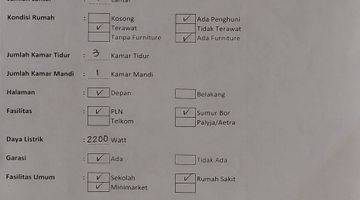 Kondisi Rumah : Kosong ✓ Ada Penghuni
✓ Terawat Tidak Terawat
Tanpa Furniture ✓ Ada Furniture
Jumlah Kamar Tidur : 3 Kamar Tidur
Jumlah Kamar Mandi : 1 Kamar Mandi
Halaman : ✓ Depan Belakang
Fasilitas : ✓ PLN ✓ Sumur Bor
Telkom Palyja/Aetra
Daya Listrik : 2200 Watt
Garasi : ✓ Ada Tidak Ada
Fasilitas Umum : ✓ Sekolah ✓ Rumah Sakit
✓ Minimarket